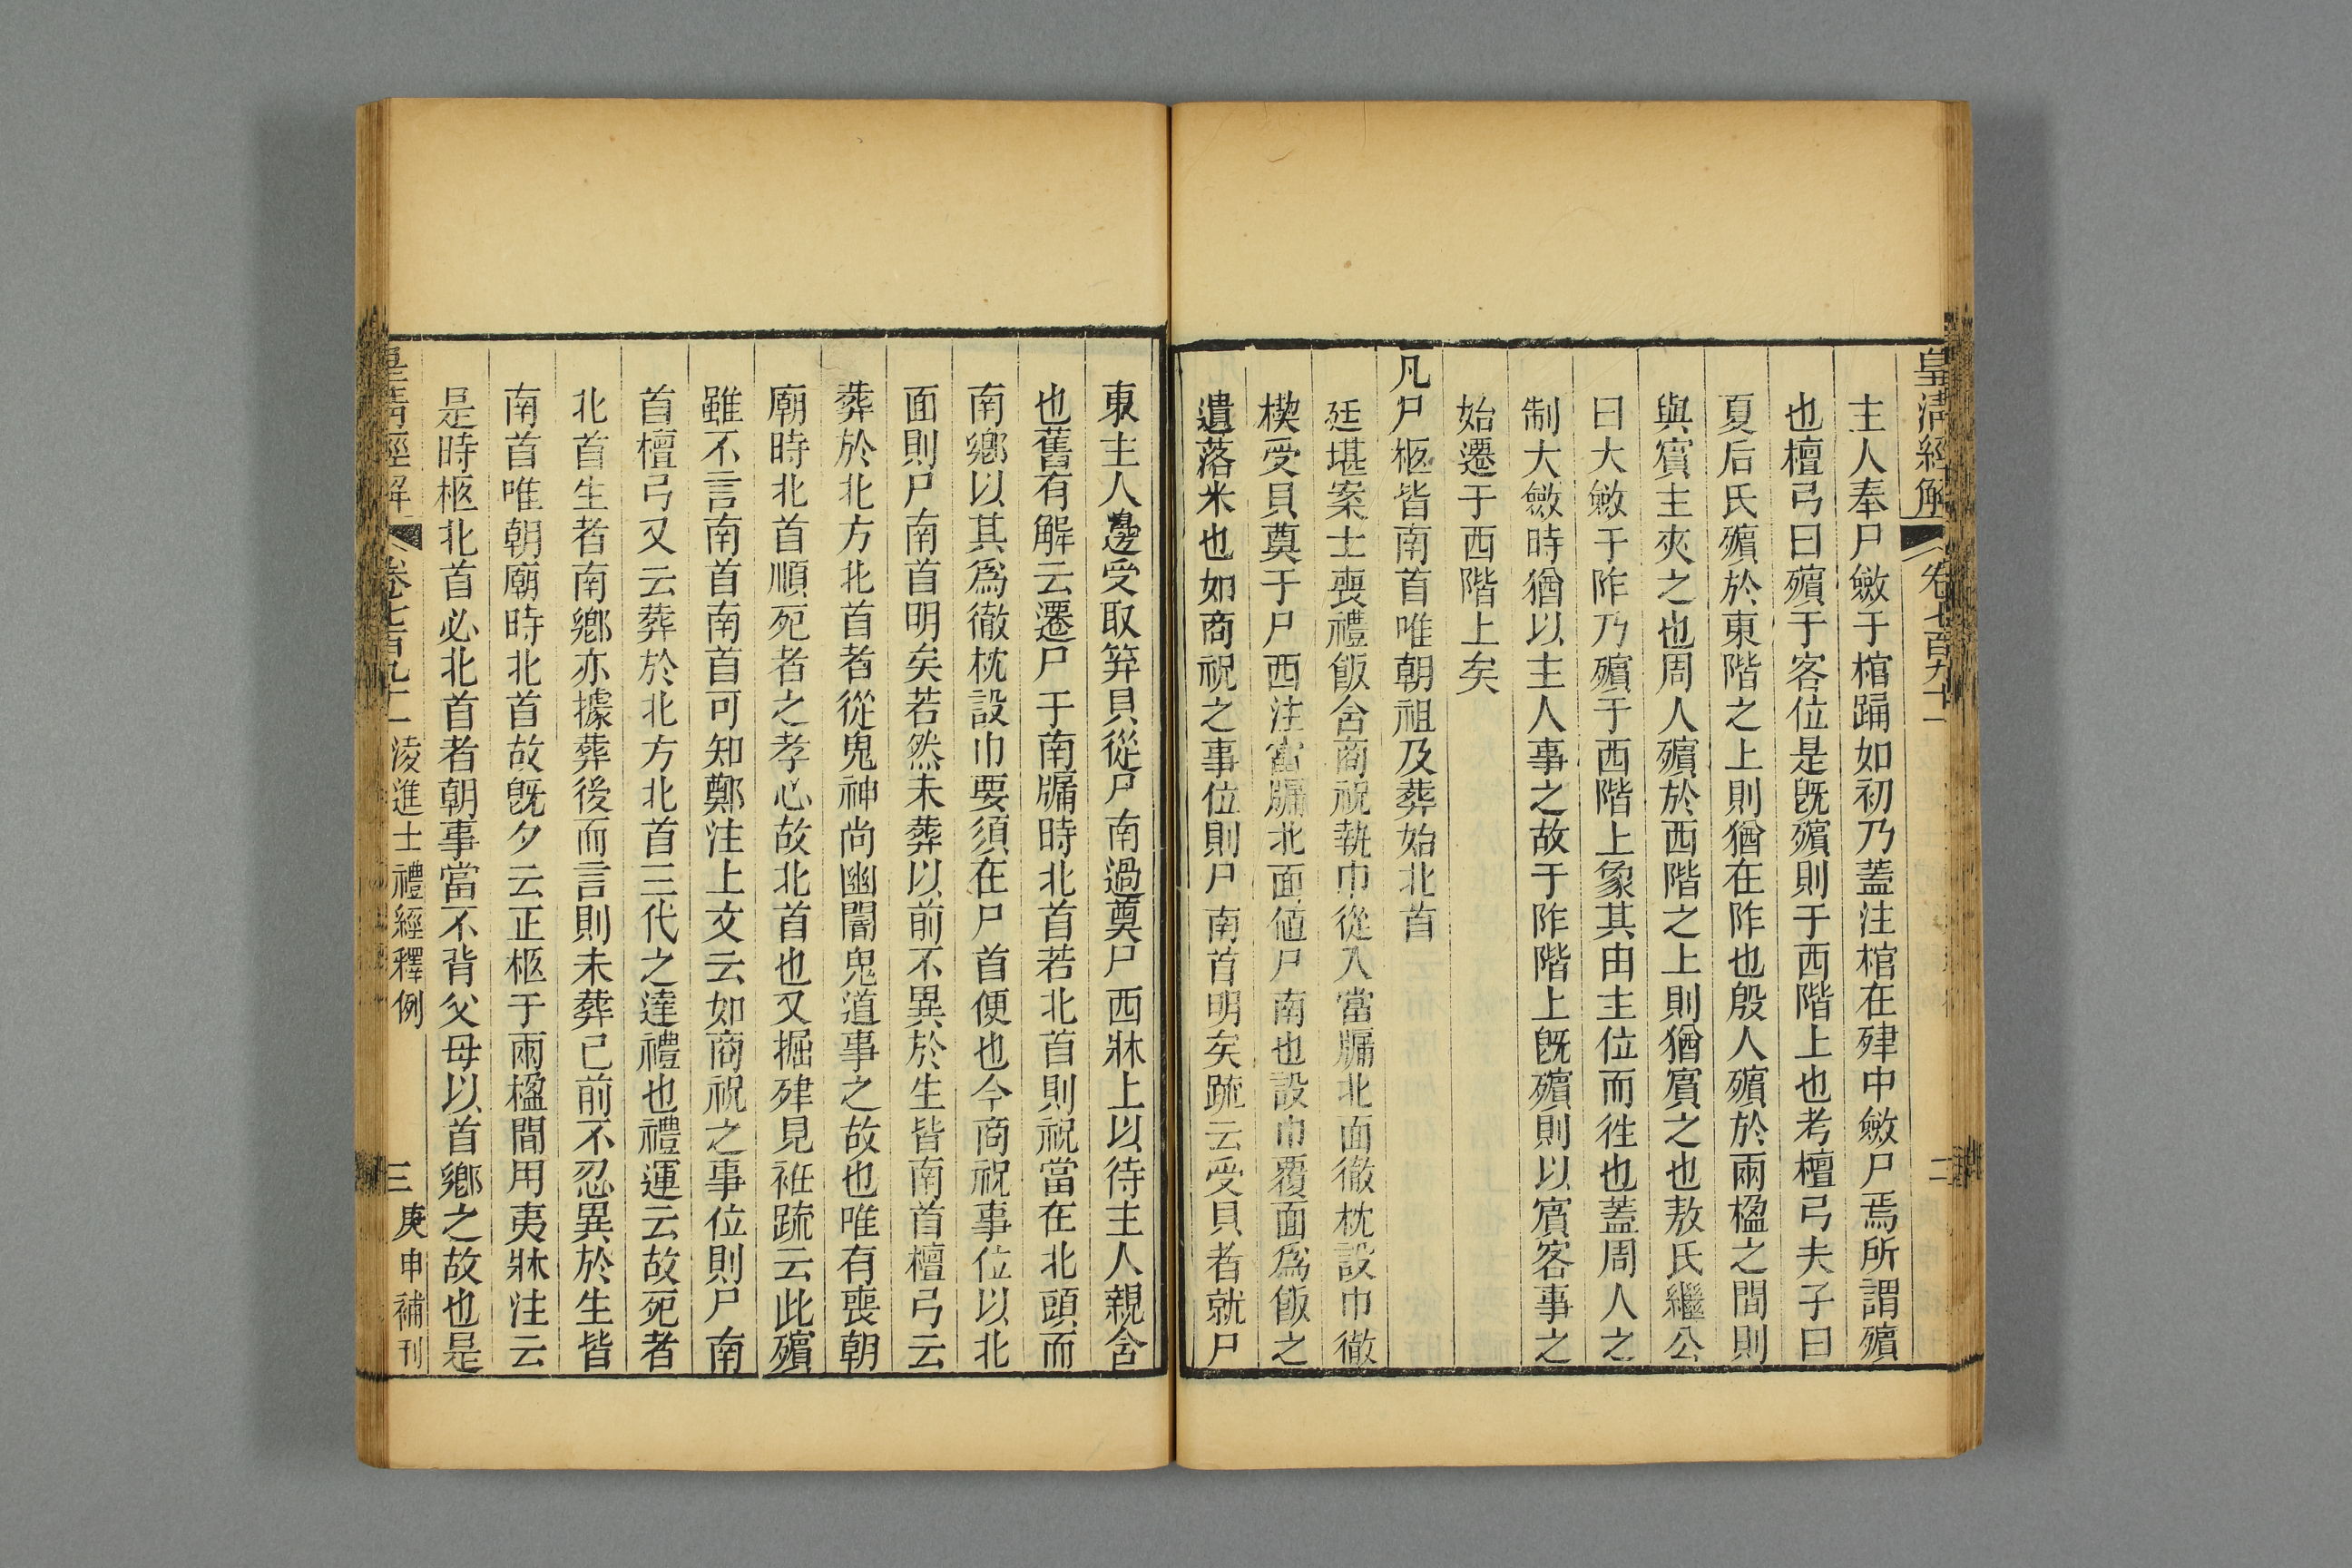 皇清經解 卷七百九十一 二
主人奉尸斂于棺踊如初乃蓋注棺在肂中斂尸焉所謂殯
也檀弓曰殯于客位是旣殯則于西階上也考檀弓夫子曰
夏后氏殯於東階之上則猶在阼也殷人殯於兩楹之間則
與賓主夾之也周人殯於西階之上則猶賓之也敖氏繼公
曰大斂于阼乃殯于西階上象其由主位而徃也蓋周人之
制大斂時猶以主人事之故于阼階上旣殯則以賓客事之
始遷于西階上矣
凡尸柩皆南首唯朝祖及葬始北首
廷堪案士喪禮飯含商祝執巾從入當牖北面徹枕設巾徹
楔受貝奠于尸西注當牖北面值尸南也設巾覆面爲飯之
遺落米也如商祝之事位則尸南首明矣疏云受貝者就尸
東主人邊受取笲貝從尸南過奠尸西牀上以待主人親含
也舊有解云遷尸于南牖時北首若北首則祝當在北頭而
南鄉以其爲徹枕設巾要須在尸首便也今商祝事位以北
面則尸南首明矣若然未葬以前不異於生皆南首檀弓云
葬於北方北首者從鬼神尚幽闇鬼道事之故也唯有喪朝
廟時北首順死者之孝心故北首也又掘肂見衽疏云此殯
雖不言南首南首可知鄭注上文云如商祝之事位則尸南
首檀弓又云葬於北方北首三代之達禮也禮運云故死者
北首生者南鄉亦據葬後而言則未葬已前不忍異於生皆
南首唯朝廟時北首故旣夕云正柩于兩楹間用夷牀注云
是時柩北首必北首者朝事當不背父母以首鄉之故也是
皇清經解 卷七百九十一 淩進士禮經釋例 三 庚申補刊